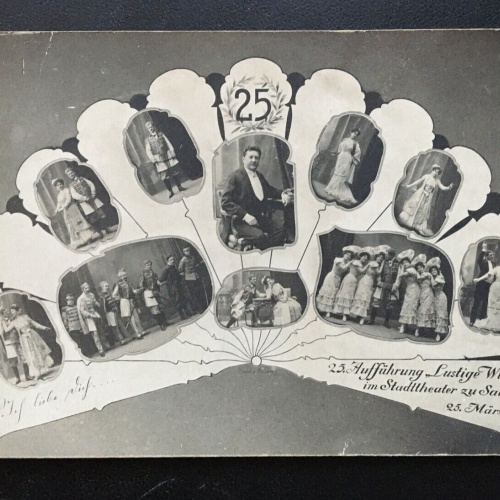 25
25. Aufführung „Lustige W
im Stadttheater zu Sa
25. Mär
Ich liebe Dich....